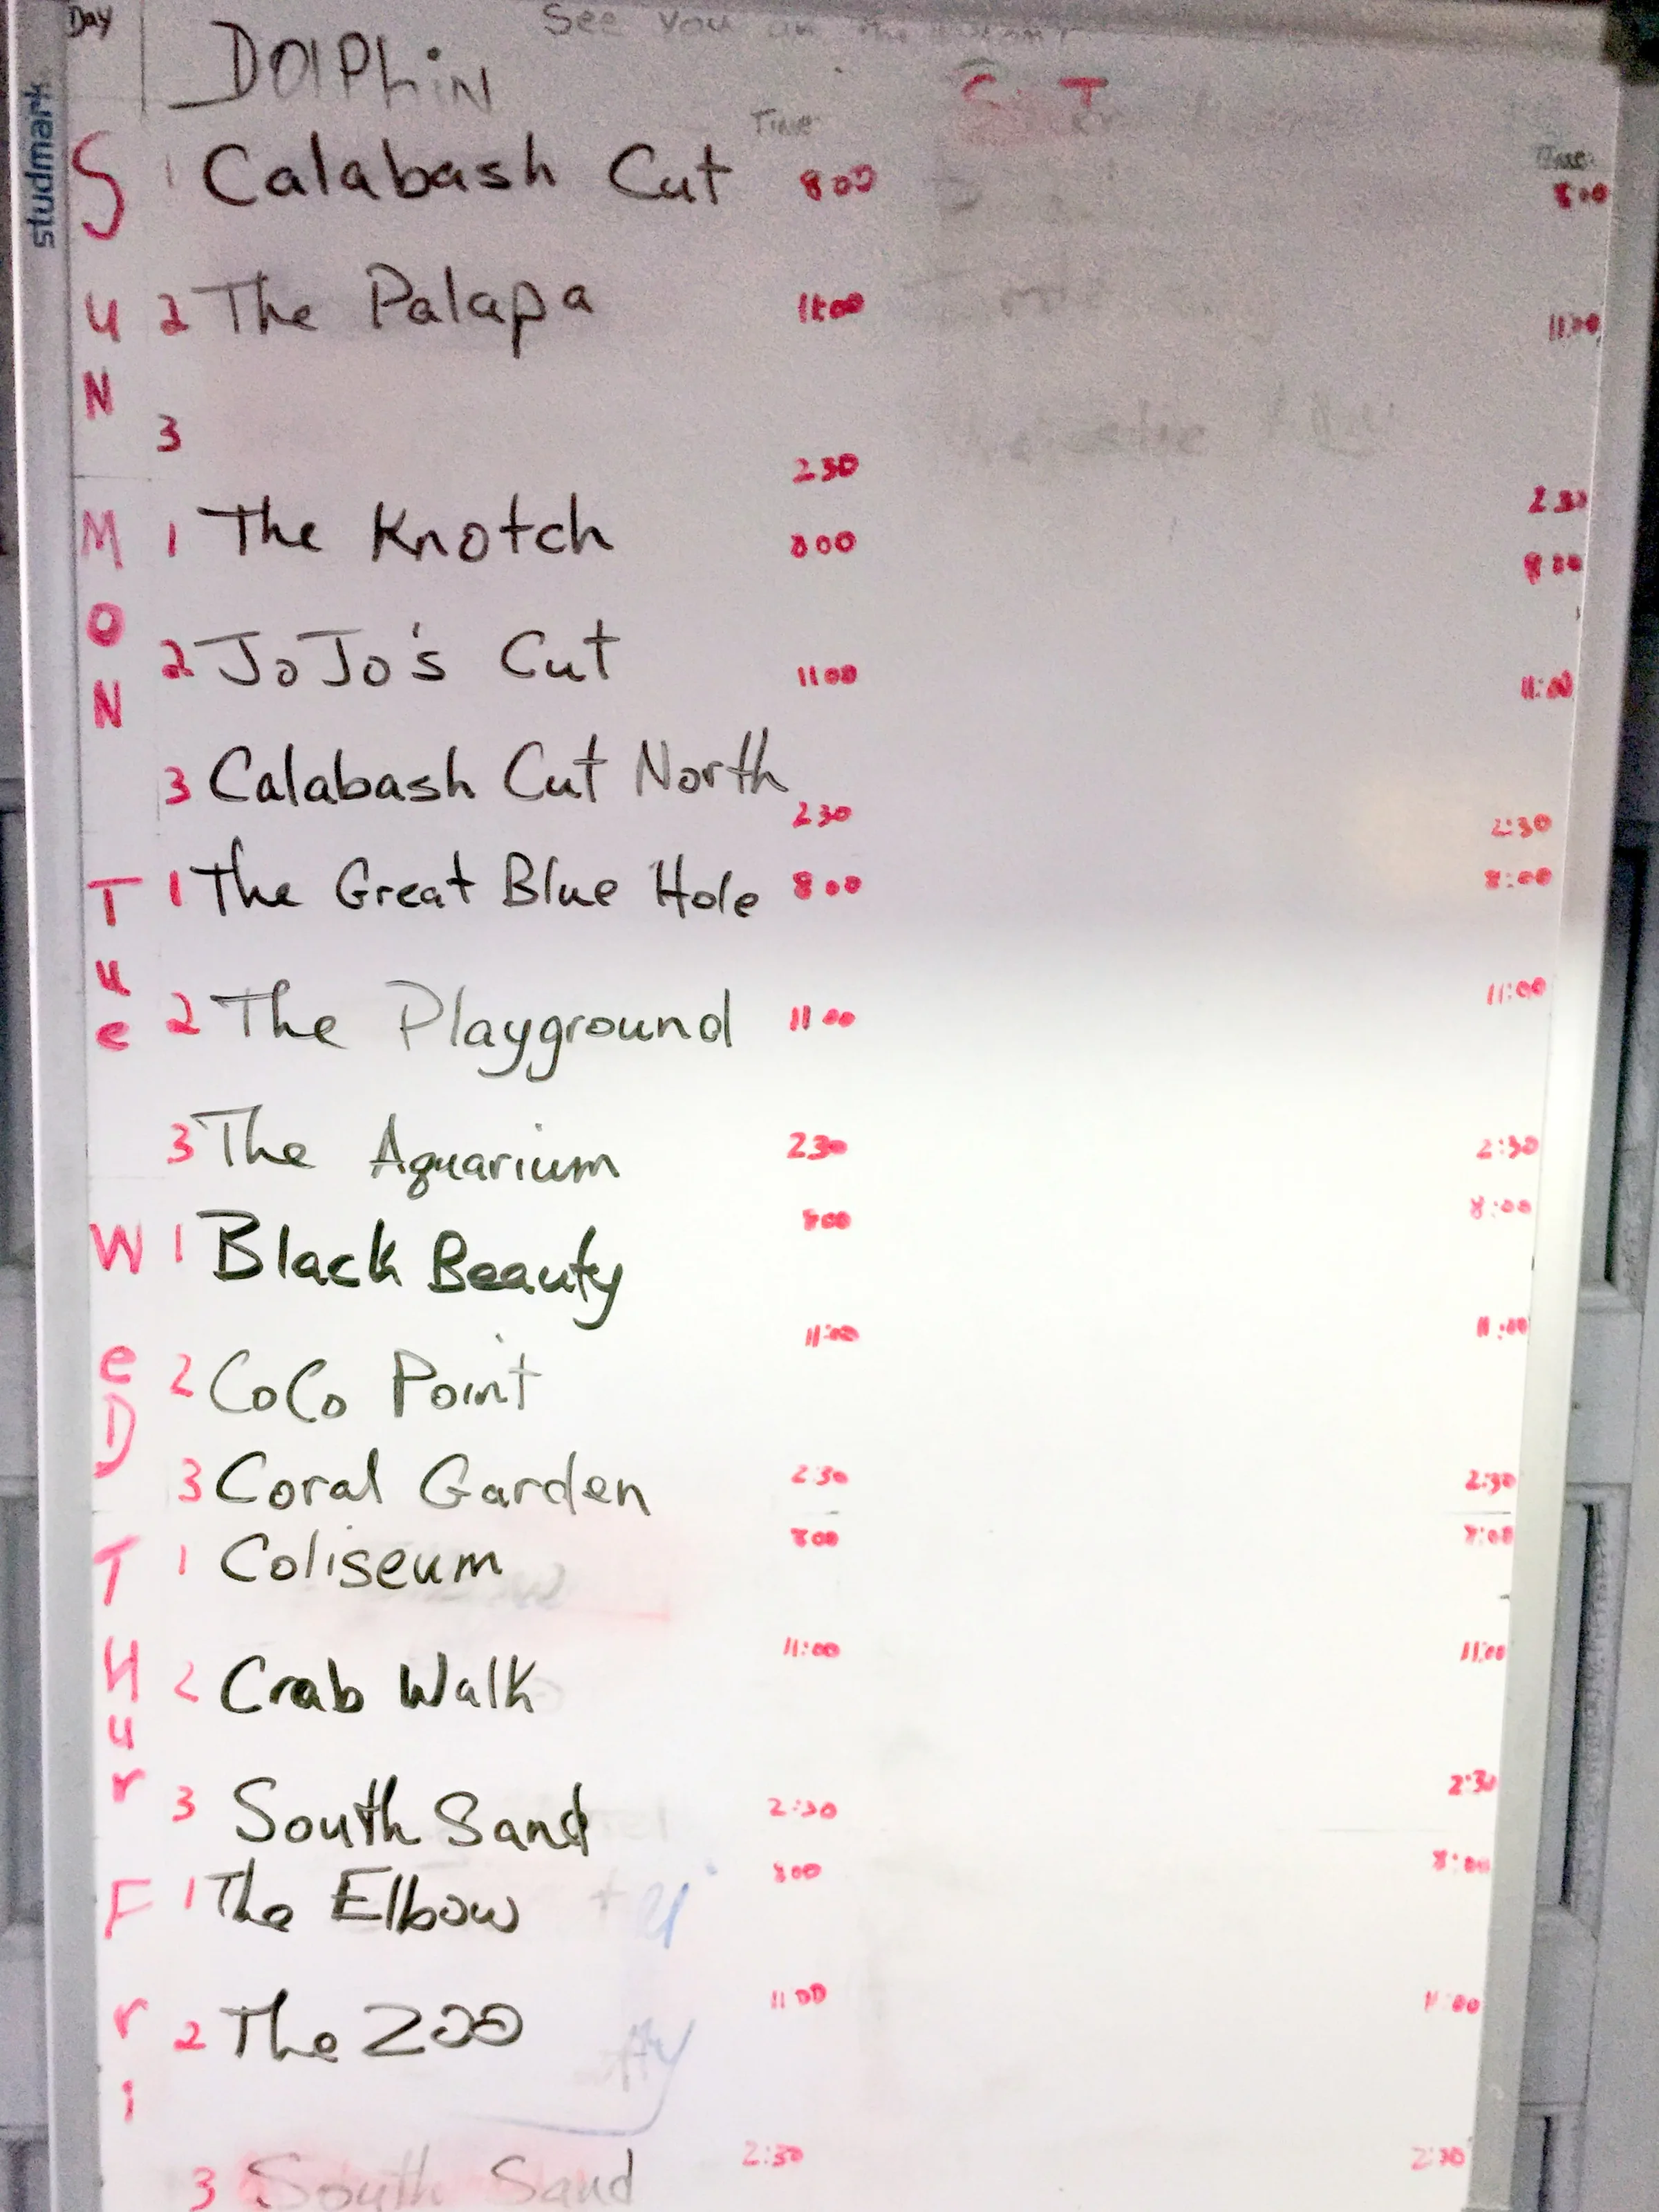 Day
See you in the
DOlPhiN
studmark
Time
Time
SUN
1 Calabash Cut 800 8:00
2 The Palapa 11:00 11:00
3 230 2 30
MON
1 The Knotch 800 8 00
2 JoJo's Cut 1100 11:00
3 Calabash Cut North 230 2:30
Tue
1 The Great Blue Hole 8 00 8:00
2 The Playground 11 00 11:00
3 The Aquarium 230 2:30
WeD
1 Black Beauty 800 8:00
2 CoCo Point 11:00 11:00
3 Coral Garden 2:30 2:30
THur
1 Coliseum 800 8:00
2 Crab Walk 11:00 11:00
3 South Sand 2:30 2:30
Fri
1 The Elbow 800 8:00
2 The Zoo 11 00 11:00
3 South Sand 2:30 2:30